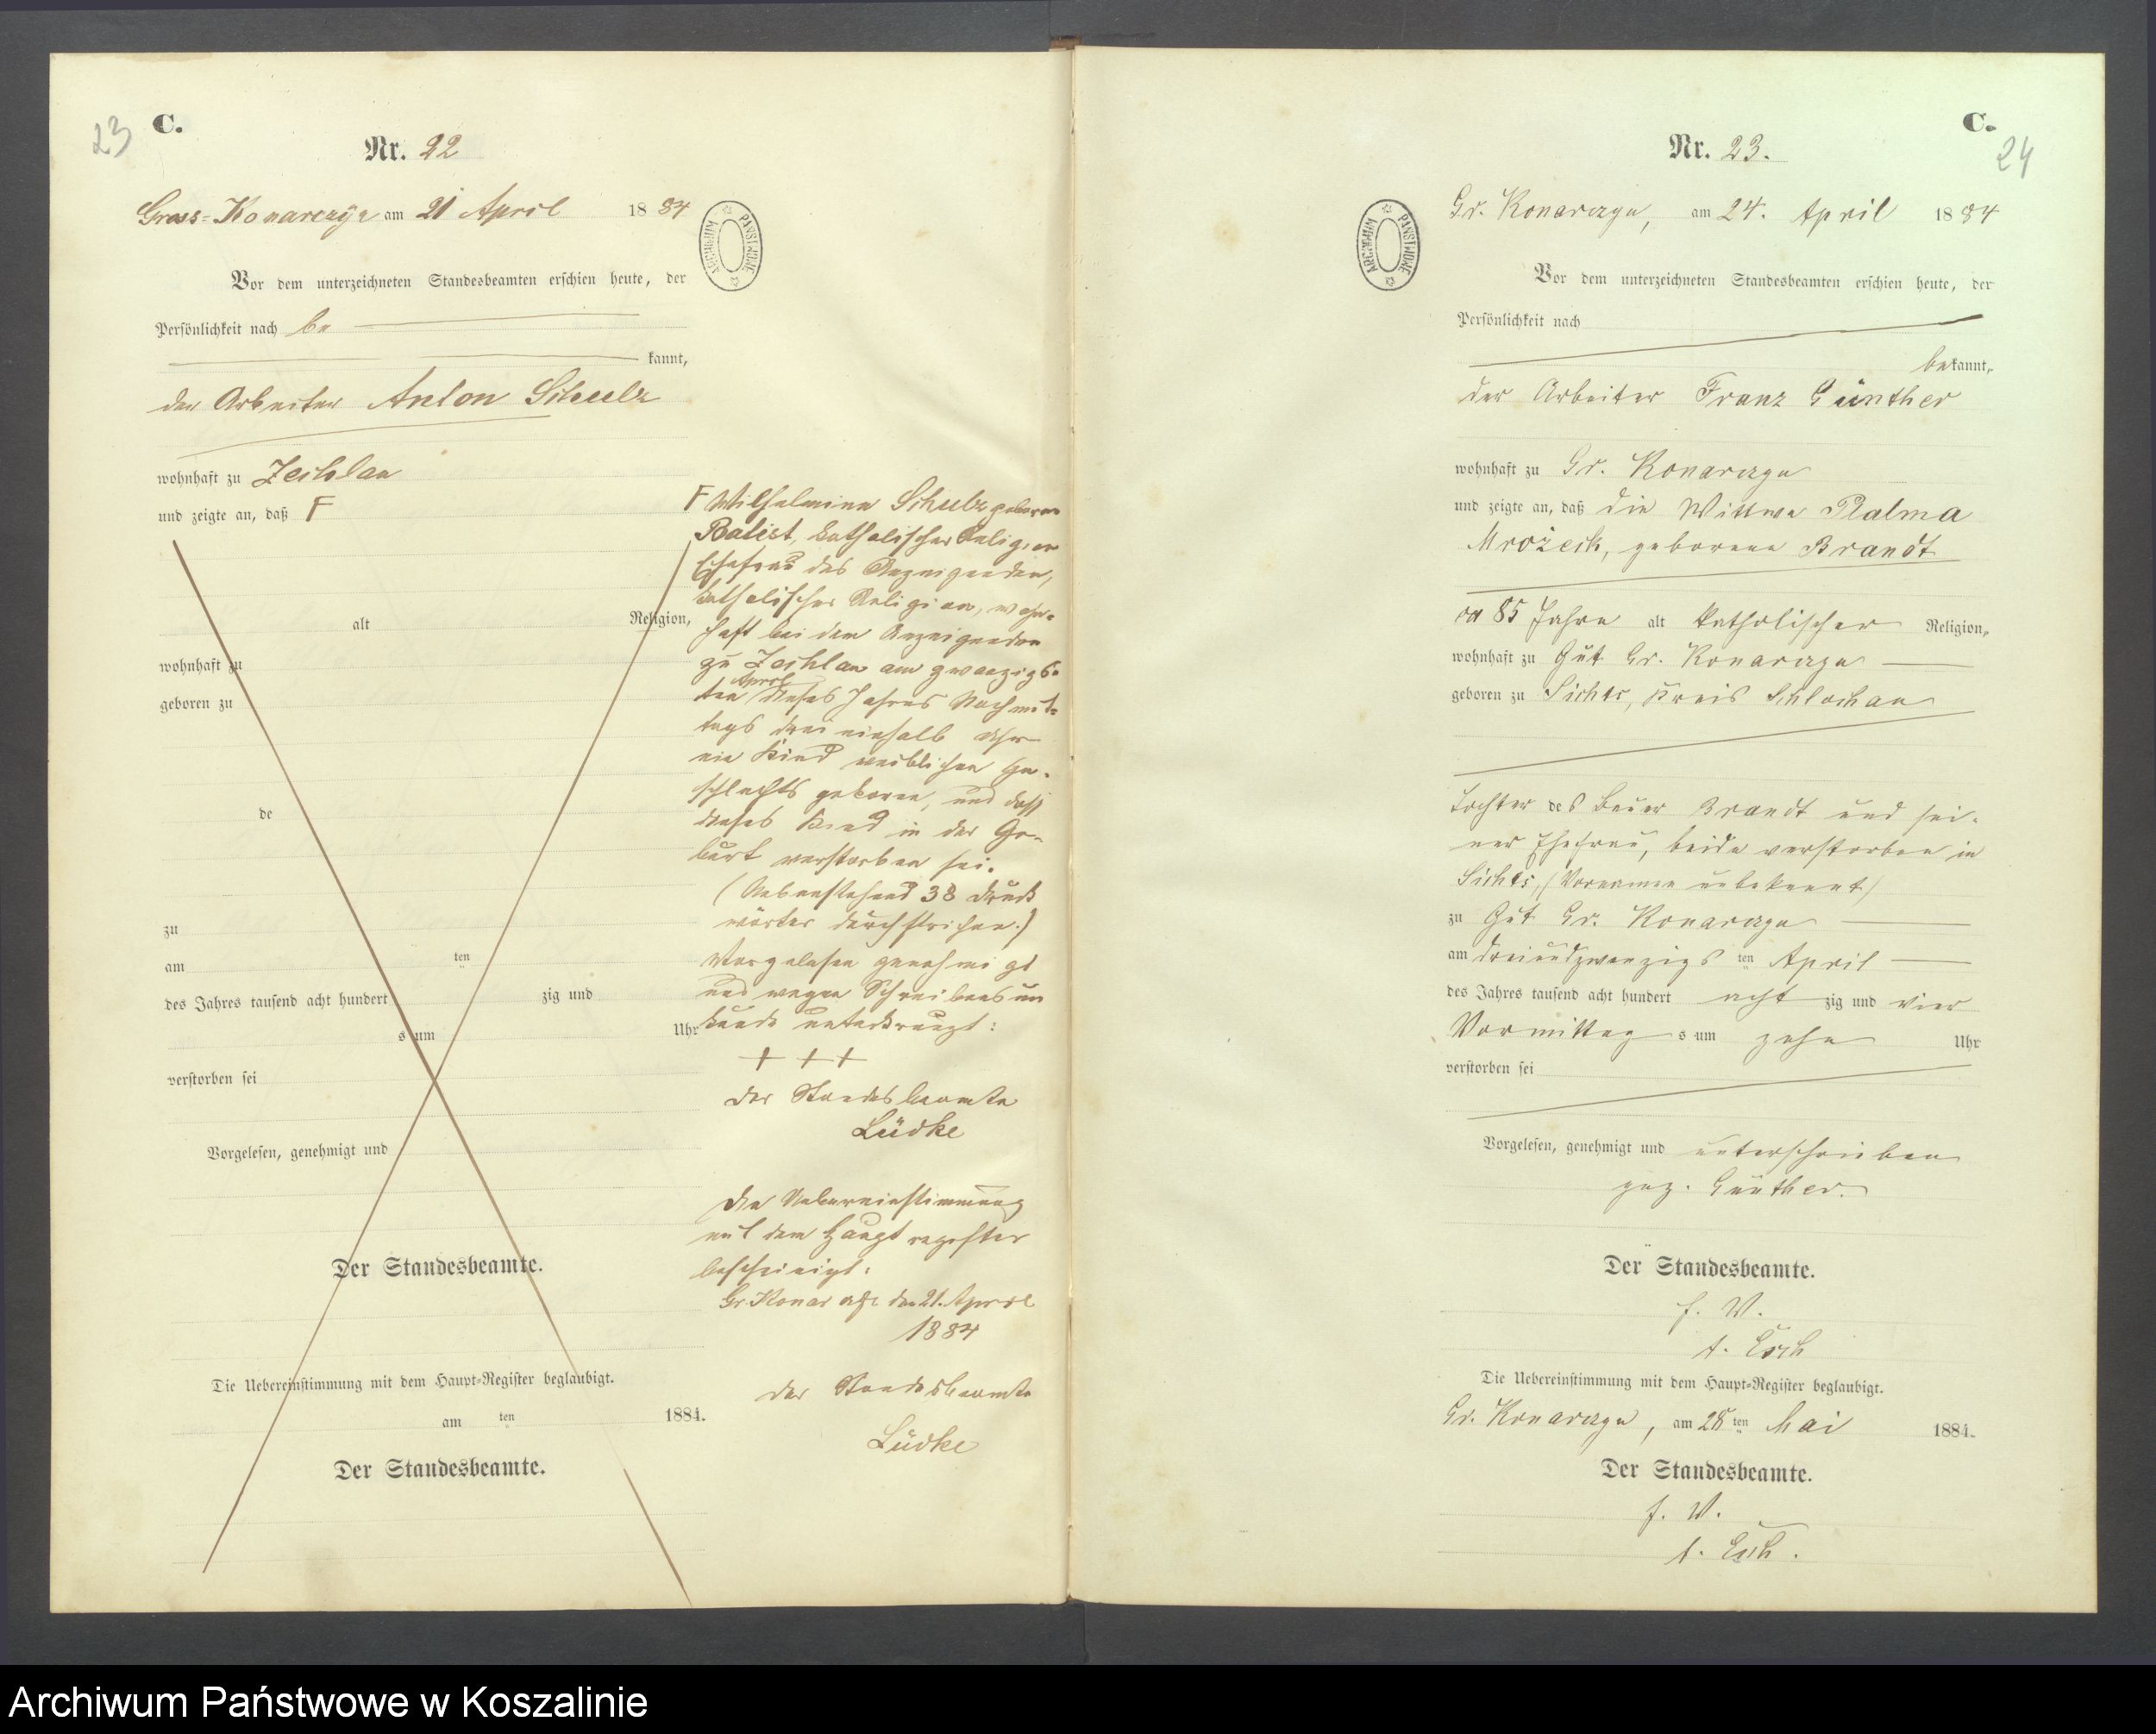 23
C.
Nr. 22
Gross-Konarczyn am 21 April 1884
ARCHIWUM PAŃSTWOWE
Vor dem unterzeichneten Standesbeamten erschien heute, der
Persönlichkeit nach be
kannt,
der Arbeiter Anton Schulz
wohnhaft zu Zechlau
und zeigte an, daß F
alt Religion,
wohnhaft zu
geboren zu
de
zu
am ten
des Jahres tausend acht hundert zig und
s um Uhr
verstorben sei
Vorgelesen, genehmigt und
Der Standesbeamte.
Die Uebereinstimmung mit dem Haupt-Register beglaubigt.
am ten 1884.
Der Standesbeamte.
F Wilhelmine Schulz geborne
Batist, katholischer Religion
Ehefrau des Anzeigenden,
katholischer Religion, wohn-
haft bei dem Anzeigenden
zu Zechlau am zwanzigs-
April
ten dieses Jahres Nachmit-
tags drei einhalb Uhr
ein Kind weiblichen Ge-
schlechts geboren, und daß
dieses Kind in der Ge-
burt verstorben sei.
(Nebenstehend 38 Druck
wörter durchstrichen.)
Vorgelesen genehmigt
und wegen Schreibensun
kunde unterkreuzt:
+ + +
Der Standesbeamte
Lüdke
Die Uebereinstimmung
mit dem Hauptregister
bescheinigt:
Gr. Konarczyn den 21. April
1884
Der Standesbeamte
Lüdke
C.
24
Nr. 23.
Gr. Konarczyn, am 24. April 1884
ARCHIWUM PAŃSTWOWE
Vor dem unterzeichneten Standesbeamten erschien heute, der
Persönlichkeit nach
bekannt,
der Arbeiter Franz Günther
wohnhaft zu Gr. Konarczyn
und zeigte an, daß die Wittwe
Mrozeck, geborene Brandt
ca 85 Jahre alt katholischer Religion,
wohnhaft zu Gut Gr. Konarczyn
geboren zu Sichts, Kreis Schlochau
Tochter des Bauer Brandt und sei-
ner Ehefrau, beide verstorben in
Sichts, (Vornamen unbekannt)
zu Gut Gr. Konarczyn
am dreiundzwanzigs ten April
des Jahres tausend acht hundert acht zig und vier
Vormittag s um zehn Uhr
verstorben sei
Vorgelesen, genehmigt und unterschrieben
gez. Günther.
Der Standesbeamte.
Die Uebereinstimmung mit dem Haupt-Register beglaubigt.
Gr. Konarczyn, am 28 ten Mai 1884.
Der Standesbeamte.
Archiwum Państwowe w Koszalinie